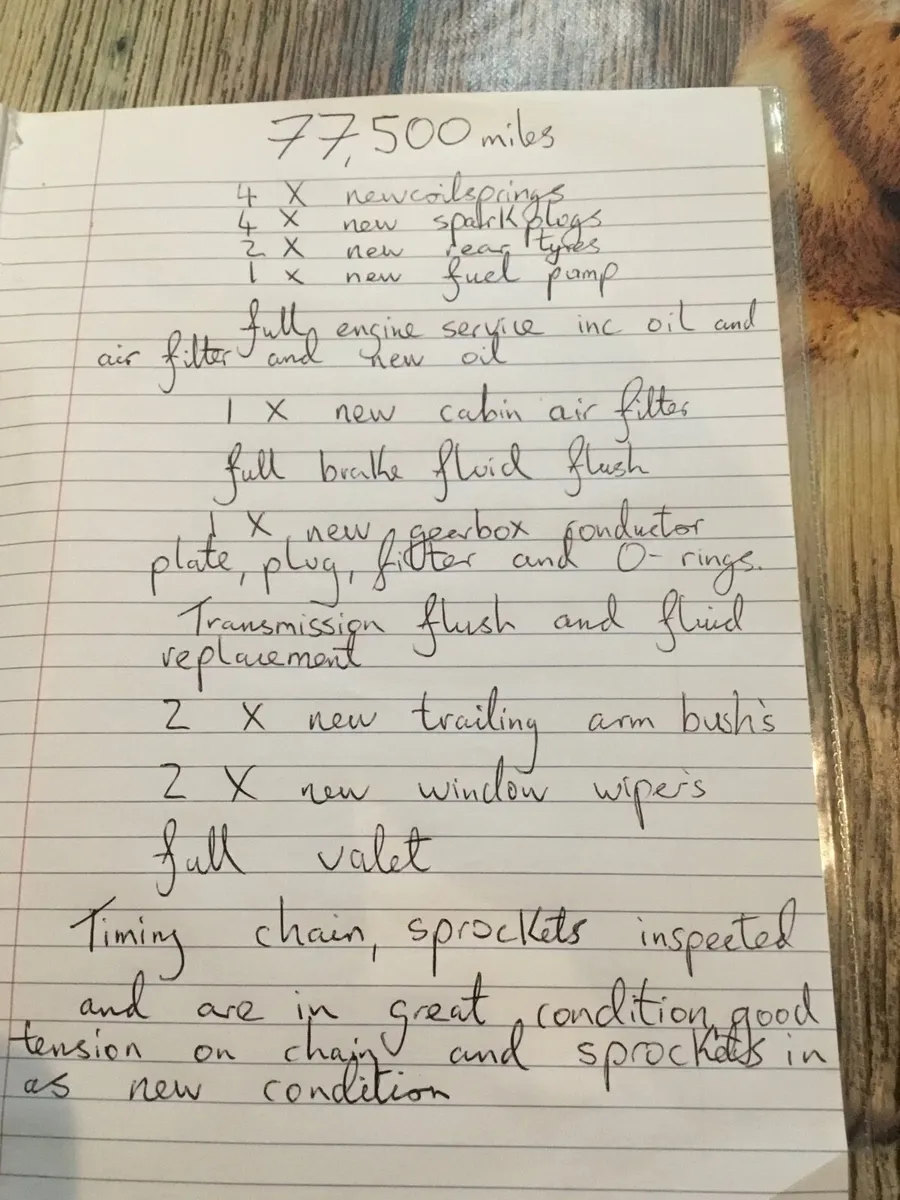 77,500 miles
4 X new coilsprings
4 X new spark plugs
2 X new rear tyres
1 x new fuel pump
full engine service inc oil and
air filter and new oil
1 X new cabin air filter
full brake fluid flush
1 X new gearbox conductor
plate, plug, filter and O-rings.
Transmission flush and fluid
replacement
2 X new trailing arm bush's
2 X new window wiper's
full valet
Timing chain, sprockets inspected
and are in great condition, good
tension on chain and sprockets in
as new condition